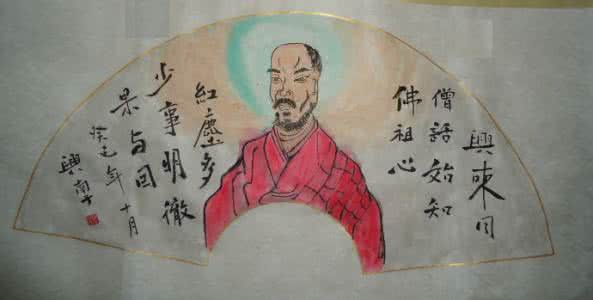 興來同
僧話始知
佛祖心
紅塵多
少事明徹
果与因
癸巳年十月
興